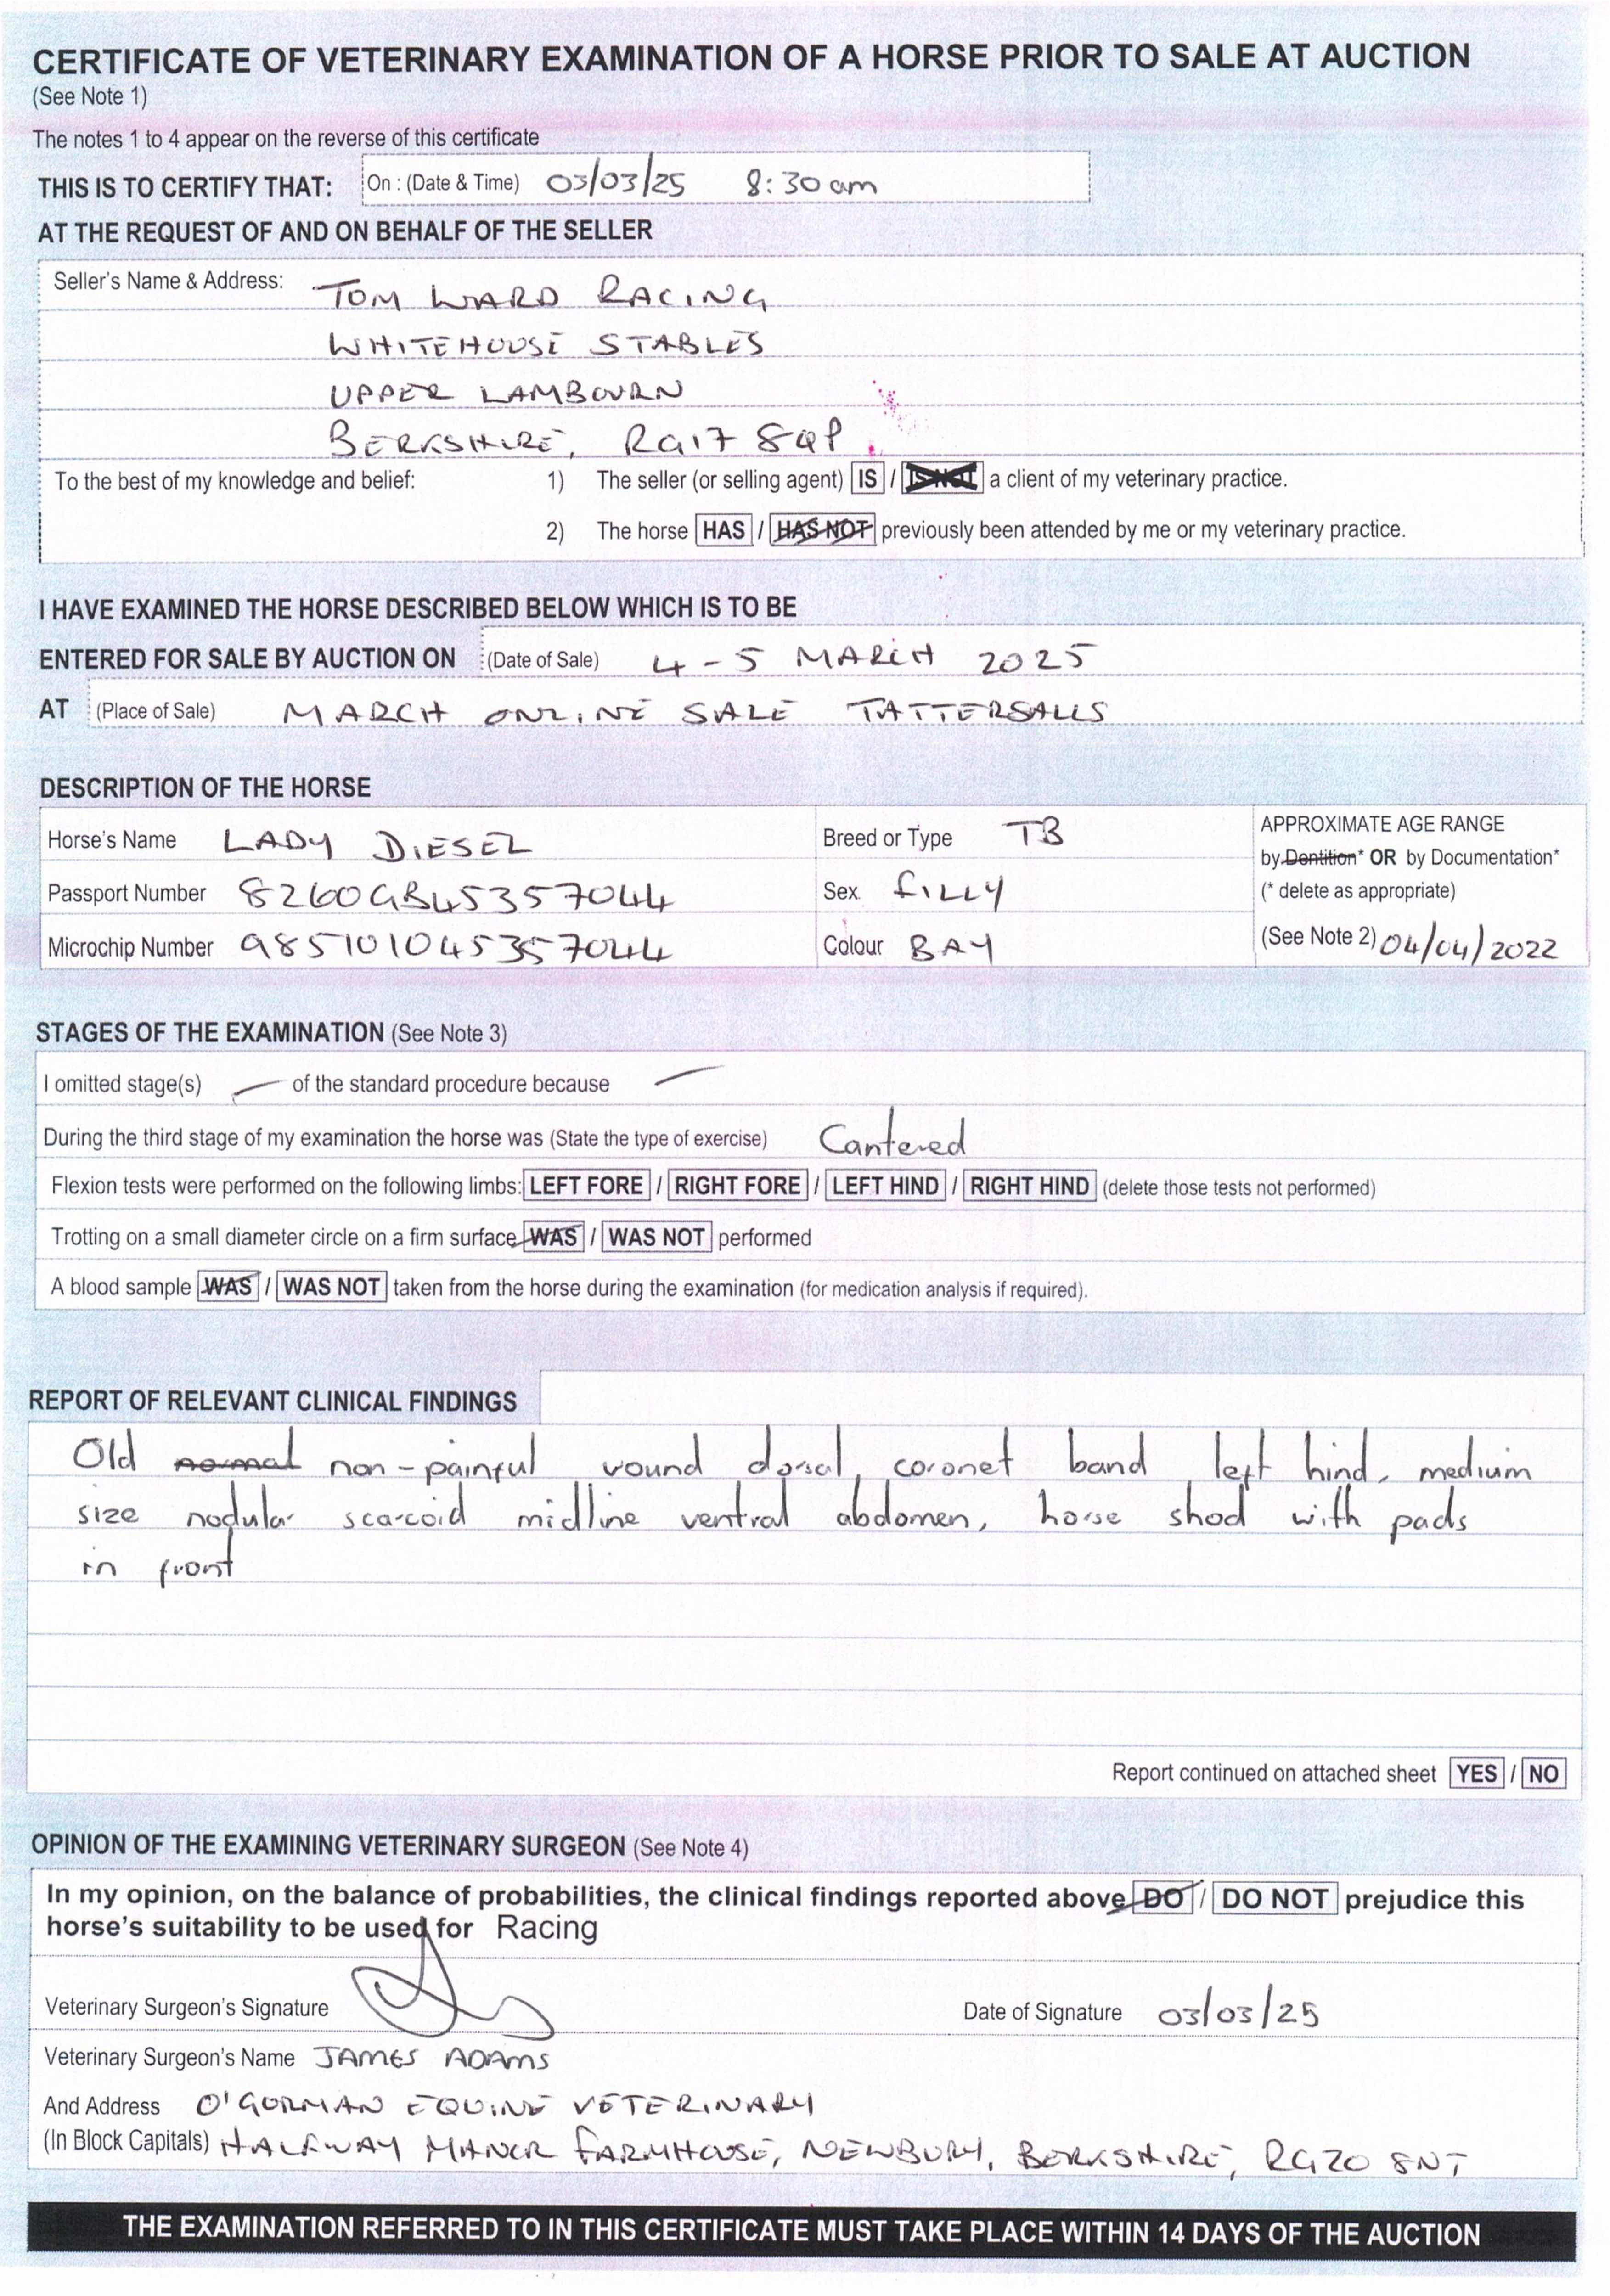 CERTIFICATE OF VETERINARY EXAMINATION OF A HORSE PRIOR TO SALE AT AUCTION
(See Note 1)
The notes 1 to 4 appear on the reverse of this certificate
THIS IS TO CERTIFY THAT: On : (Date & Time) 03/03/25 8:30am
AT THE REQUEST OF AND ON BEHALF OF THE SELLER
Seller's Name & Address: TOM WARD RACING
WHITEHOUSE STABLES
UPPER LAMBOURN
BERKSHIRE, RG17 8QP
To the best of my knowledge and belief: 1) The seller (or selling agent) IS / IS NOT a client of my veterinary practice.
2) The horse HAS / HAS NOT previously been attended by me or my veterinary practice.
I HAVE EXAMINED THE HORSE DESCRIBED BELOW WHICH IS TO BE
ENTERED FOR SALE BY AUCTION ON (Date of Sale) 4-5 MARCH 2025
AT (Place of Sale) MARCH ONLINE SALE TATTERSALLS
DESCRIPTION OF THE HORSE
Horse's Name LADY DIESEL Breed or Type TB APPROXIMATE AGE RANGE
by Dentition* OR by Documentation*
Passport Number 8260GB45357044 Sex FILLY (* delete as appropriate)
Microchip Number 985101045357044 Colour BAY (See Note 2) 04/04/2022
STAGES OF THE EXAMINATION (See Note 3)
I omitted stage(s) — of the standard procedure because —
During the third stage of my examination the horse was (State the type of exercise) Cantered
Flexion tests were performed on the following limbs: LEFT FORE / RIGHT FORE / LEFT HIND / RIGHT HIND (delete those tests not performed)
Trotting on a small diameter circle on a firm surface WAS / WAS NOT performed
A blood sample WAS / WAS NOT taken from the horse during the examination (for medication analysis if required).
REPORT OF RELEVANT CLINICAL FINDINGS
Old normal non-painful wound dorsal coronet band left hind, medium
size nodular sarcoid midline ventral abdomen, horse shod with pads
in front
Report continued on attached sheet YES / NO
OPINION OF THE EXAMINING VETERINARY SURGEON (See Note 4)
In my opinion, on the balance of probabilities, the clinical findings reported above DO / DO NOT prejudice this
horse's suitability to be used for Racing
Veterinary Surgeon's Signature Date of Signature 03/03/25
Veterinary Surgeon's Name JAMES ADAMS
And Address O'GORMAN EQUINE VETERINARY
(In Block Capitals) HALFWAY MANOR FARMHOUSE, NEWBURY, BERKSHIRE, RG20 8NT
THE EXAMINATION REFERRED TO IN THIS CERTIFICATE MUST TAKE PLACE WITHIN 14 DAYS OF THE AUCTION